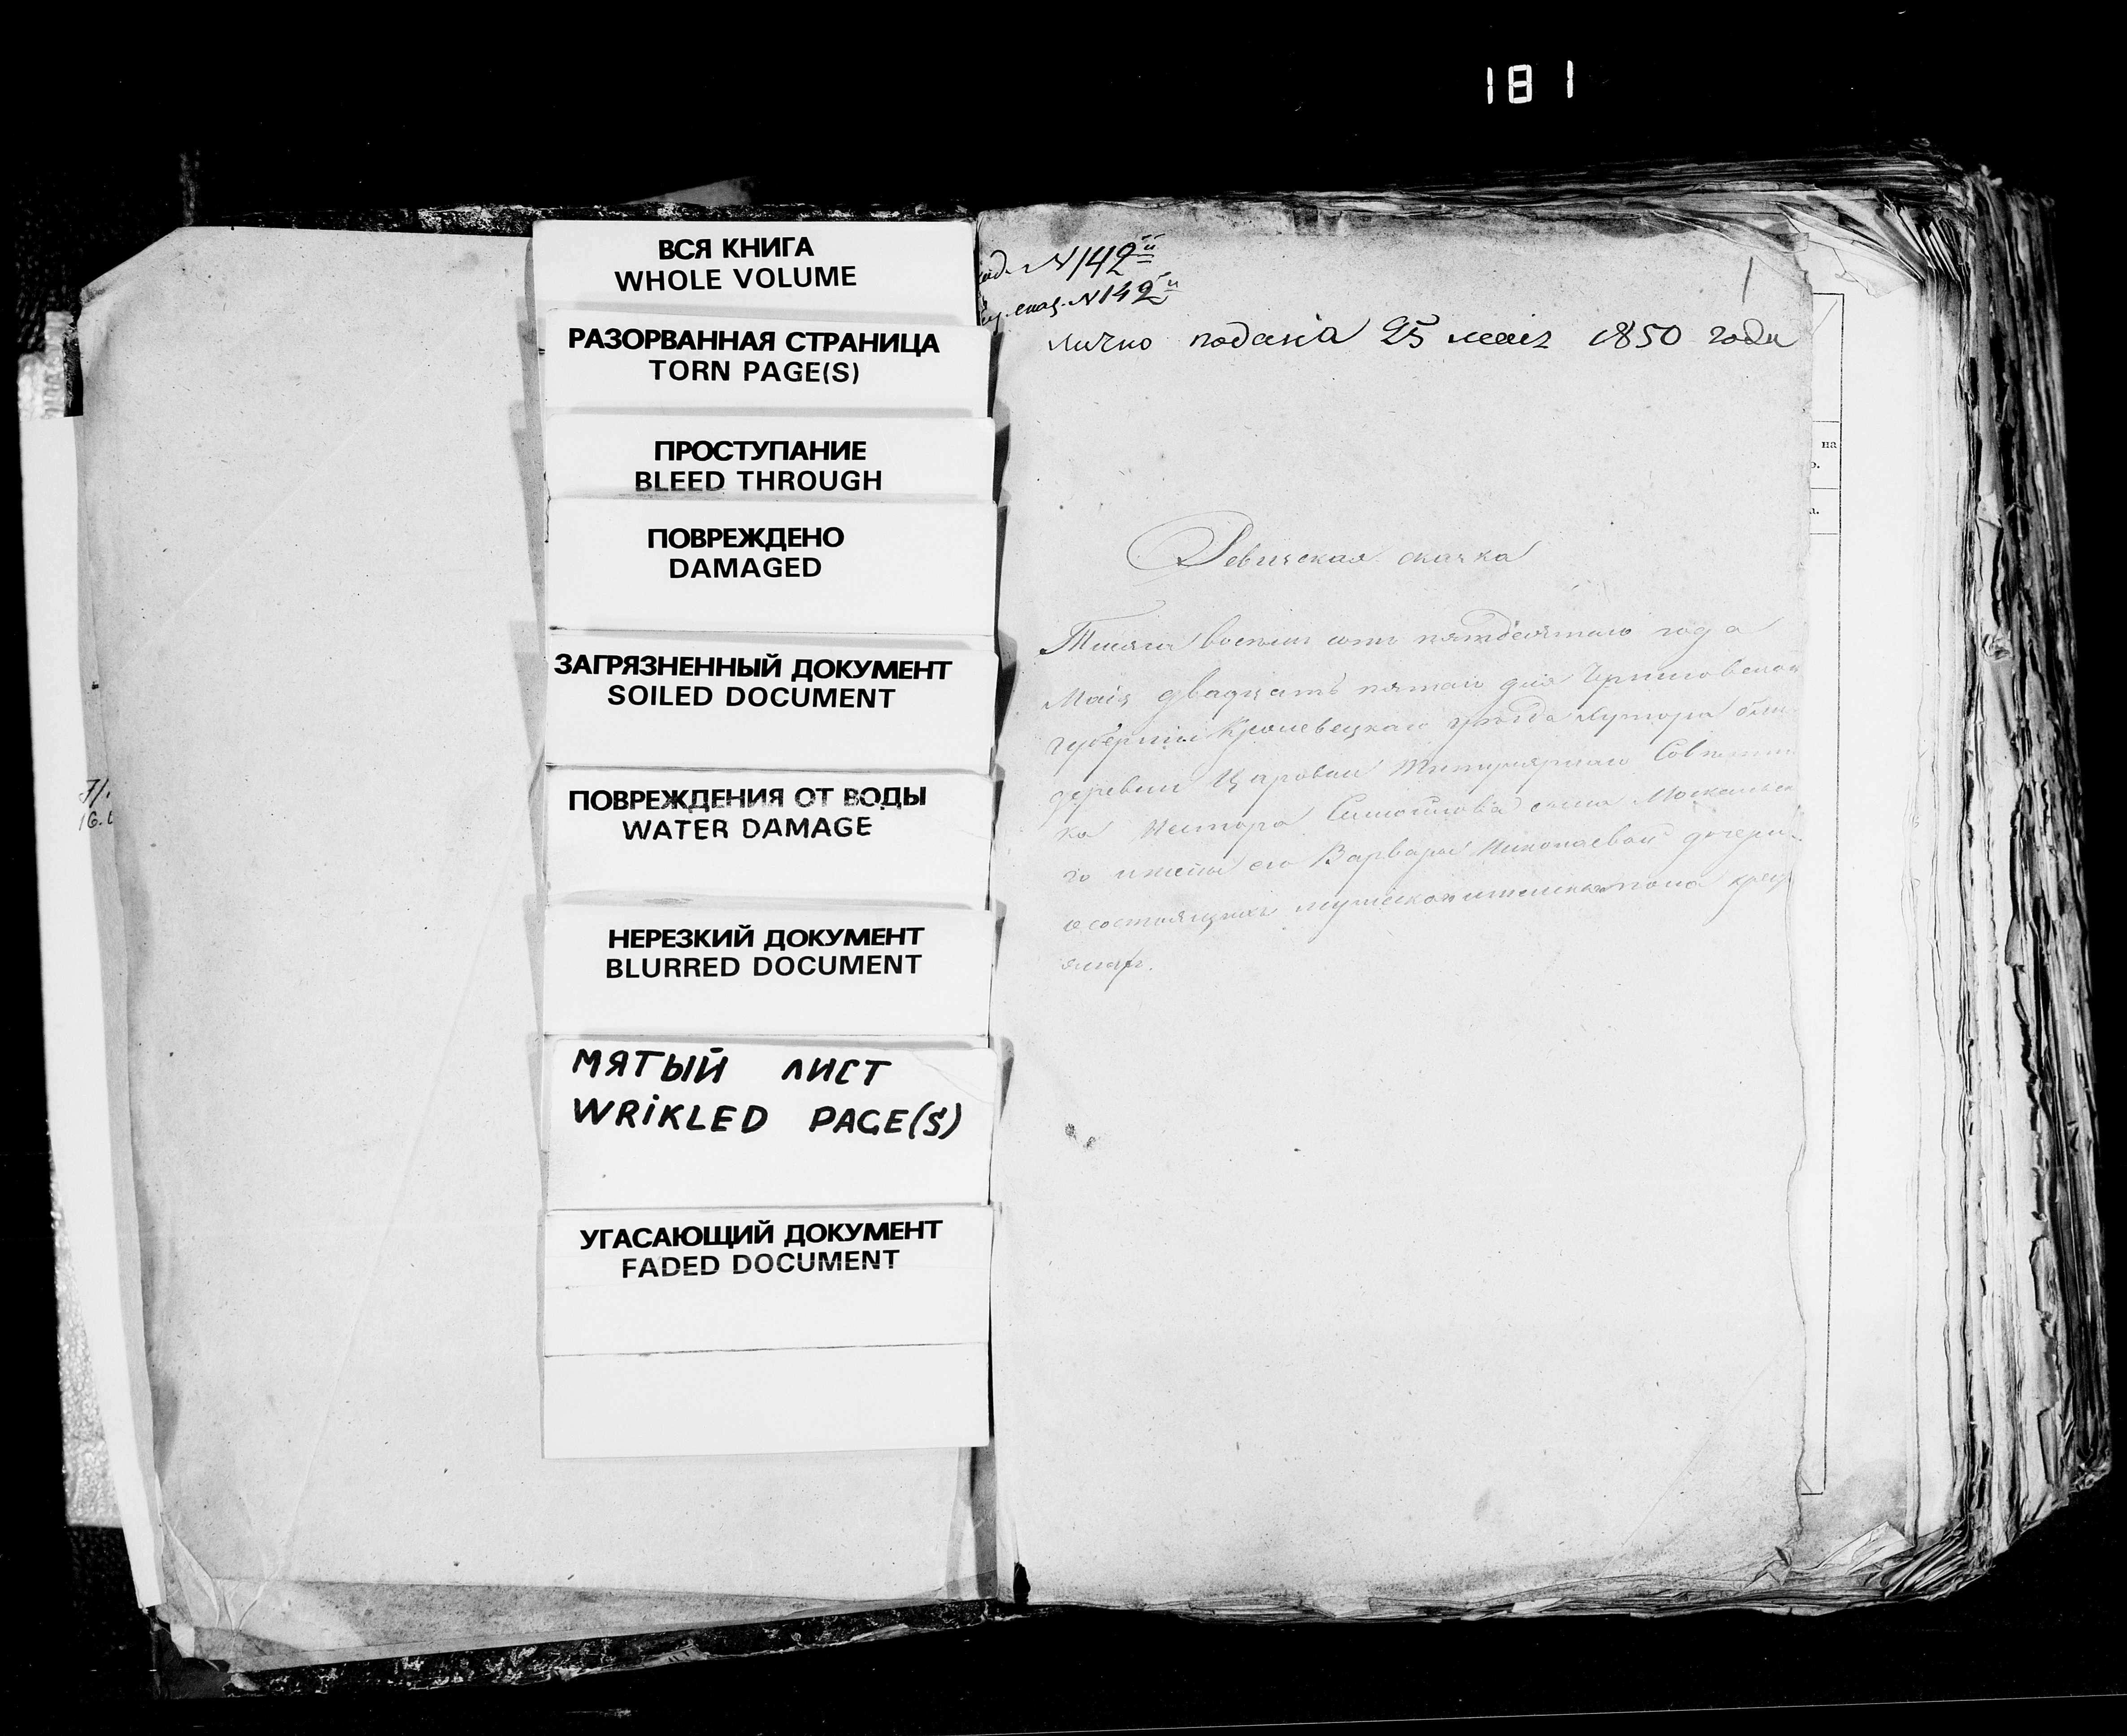 181
ВСЯ КНИГА
WHOLE VOLUME
РАЗОРВАННАЯ СТРАНИЦА
TORN PAGE(S)
ПРОСТУПАНИЕ
BLEED THROUGH
ПОВРЕЖДЕНО
DAMAGED
ЗАГРЯЗНЕННЫЙ ДОКУМЕНТ
SOILED DOCUMENT
ПОВРЕЖДЕНИЯ ОТ ВОДЫ
WATER DAMAGE
НЕРЕЗКИЙ ДОКУМЕНТ
BLURRED DOCUMENT
МЯТЫЙ ЛИСТ
WRIKLED PAGE(S)
УГАСАЮЩИЙ ДОКУМЕНТ
FADED DOCUMENT
N 142й
N 142й
1
лично подана 25 маія 1850 года
Ревизская сказка
Тысяча восемь сотъ пятдесятаго года
Маія двадцать пятаго дня Черниговской
губерніи Кролевецкаго уезда хутора
деревни Титулярнаго
ка Нестора сына
го и жены его Варвары Николаевой дочери
о состоящихъ мужеска и женска пола
на